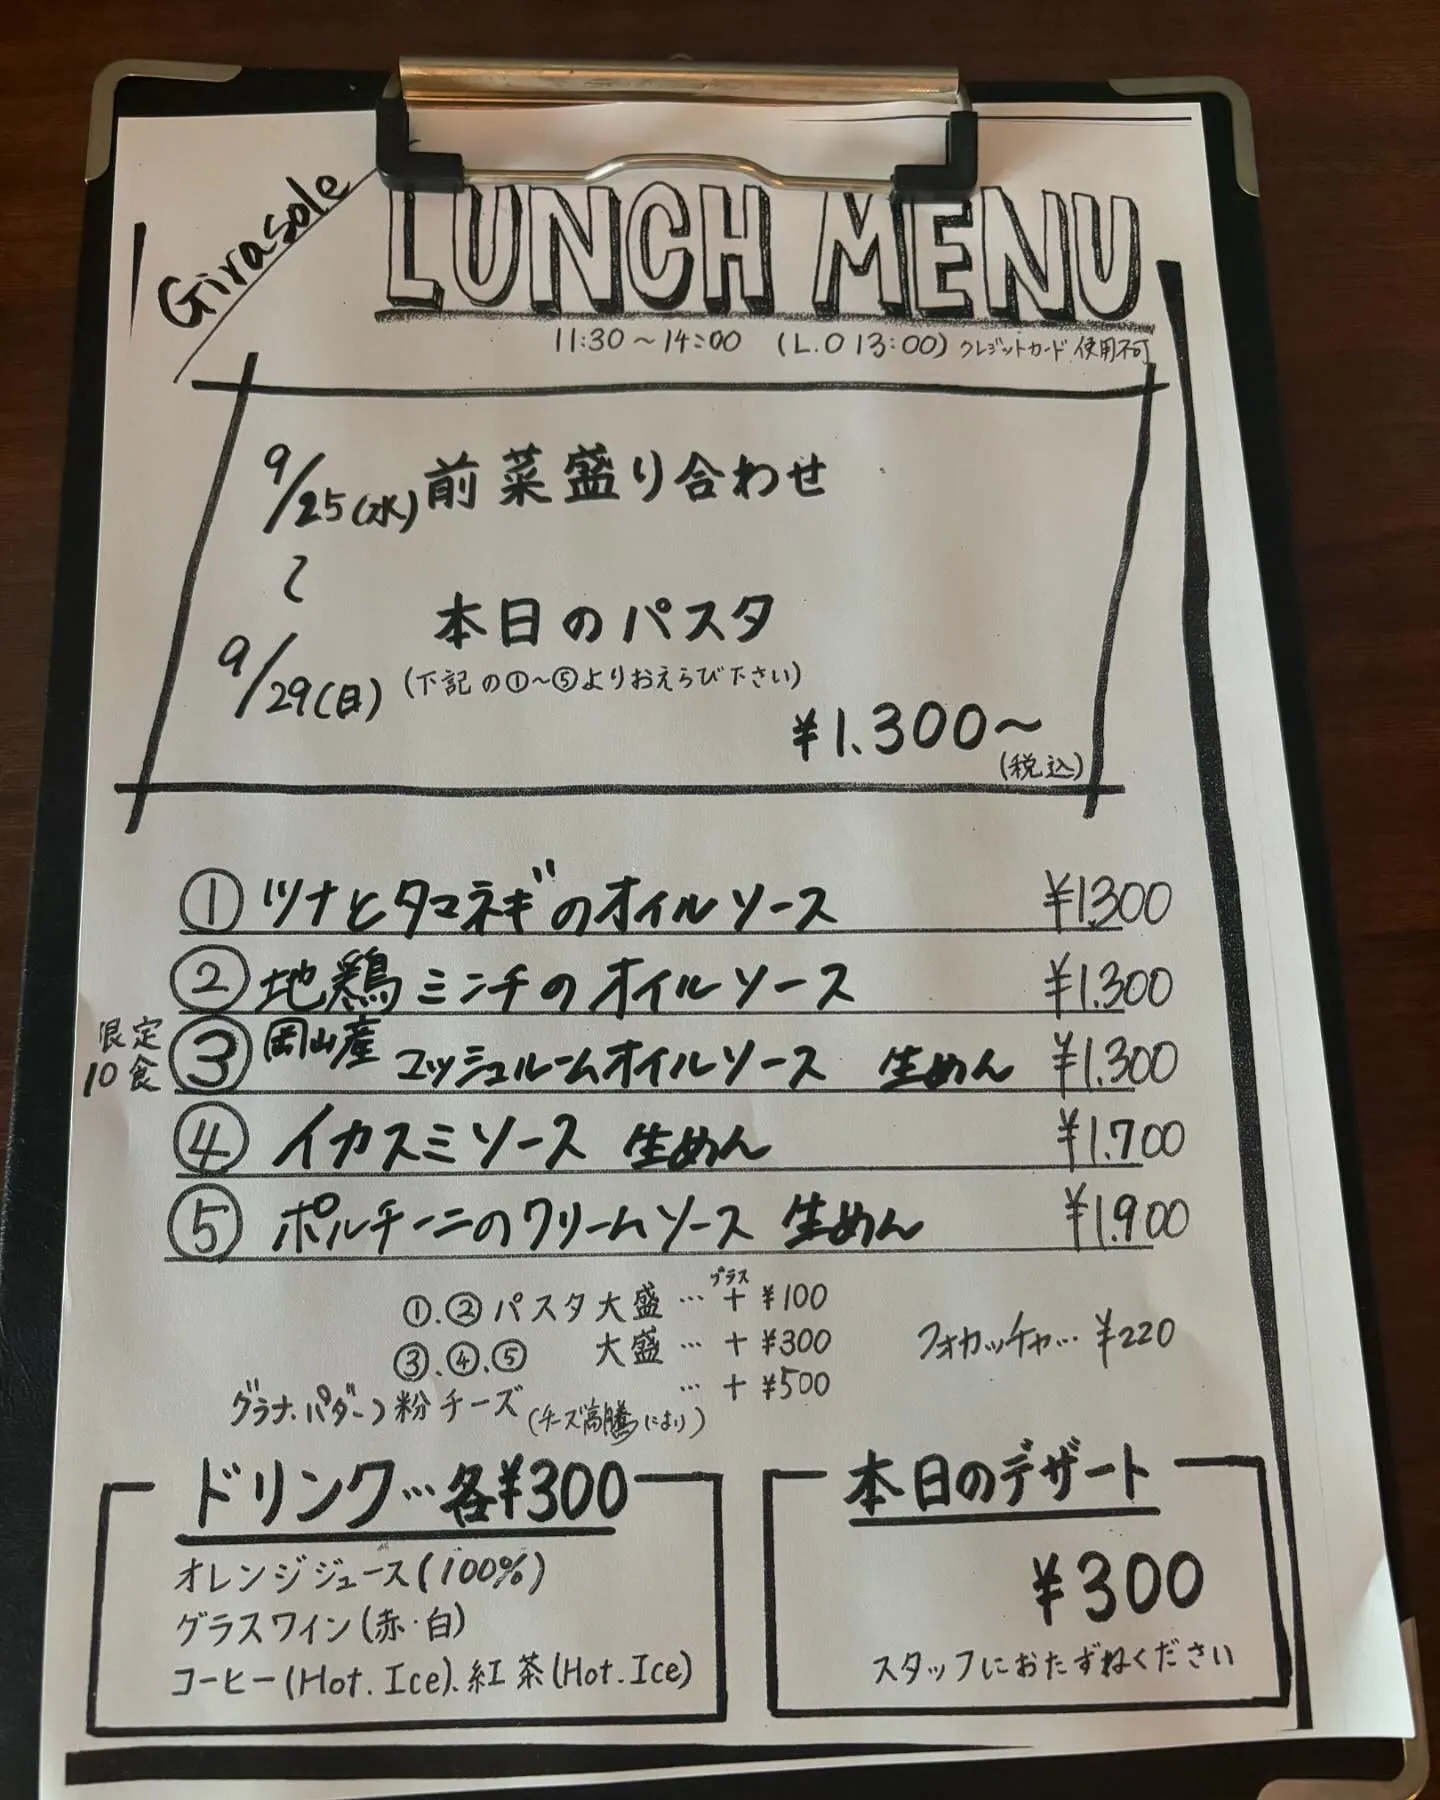 Girasole
LUNCH MENU
11:30～14:00 (L.O 13:00) クレジットカード使用不可
9/25(水) 前菜盛り合わせ
～
本日のパスタ
9/29(日) (下記の①～⑤よりおえらび下さい)
¥1.300～
(税込)
① ツナとタマネギのオイルソース ¥1.300
② 地鶏ミンチのオイルソース ¥1.300
限定10食 ③ 岡山産 マッシュルームオイルソース 生めん ¥1.300
④ イカスミソース 生めん ¥1.700
⑤ ポルチーニのクリームソース 生めん ¥1.900
プラス
①.② パスタ大盛 … + ¥100
③.④.⑤ 大盛 … + ¥300
フォカッチャ… ¥220
グラナ.パダーノ粉チーズ (チーズ高騰により) … + ¥500
ドリンク…各¥300
オレンジジュース(100%)
グラスワイン(赤・白)
コーヒー(Hot.Ice).紅茶(Hot.Ice)
本日のデザート
¥300
スタッフにおたずねください